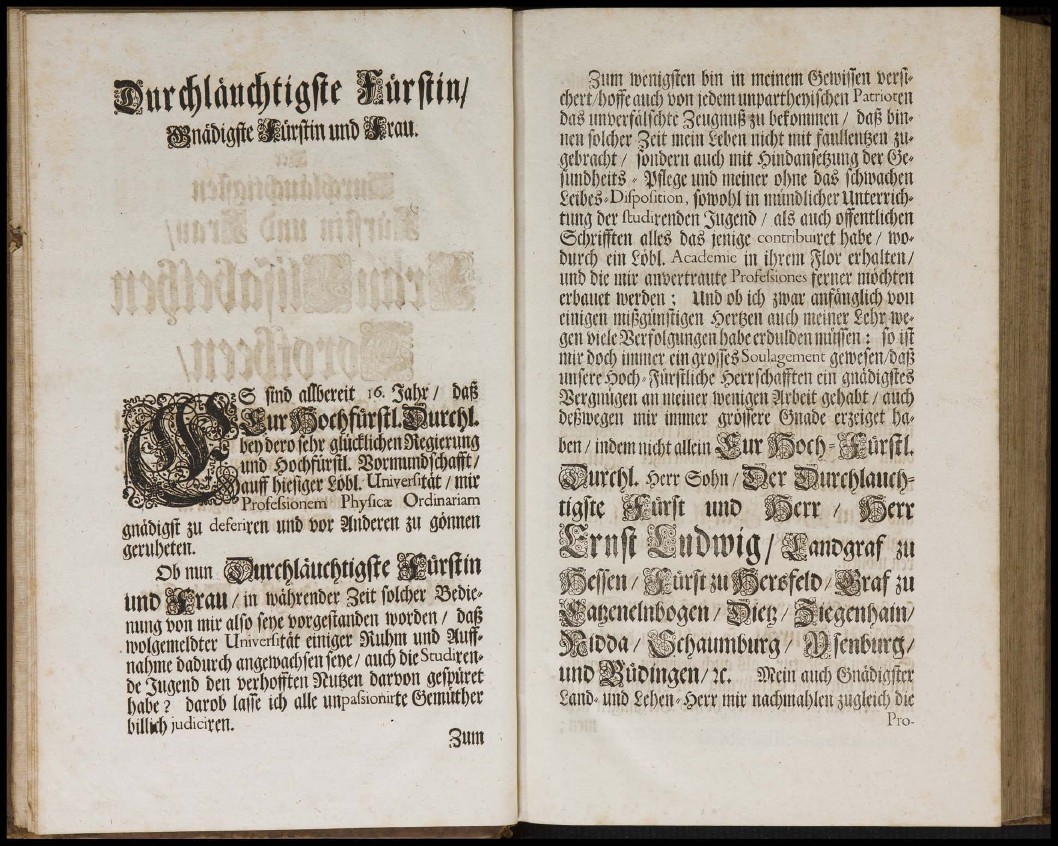 Durchläuchtigste Fürstin/
Gnädigste Fürstin und Frau.
ES sind allbereit 16. Jahr / daß
Eur Hochfürstl. Durchl.
bey dero sehr glücklichen Regierung
und Hochfürstl. Vormundschafft /
auff hiesiger Löbl. Universität / mir
Professionem Physicæ Ordinariam
gnädigst zu deferiren und vor Anderen zu gönnen
geruheten.
Ob nun Durchläuchtigste Fürstin
und Frau / in währender Zeit solcher Bedie-
nung von mir also seye vorgestanden worden / daß
wolgemeldter Universität einiger Ruhm und Auff-
nahme dadurch angewachsen seye / auch die Studiren-
de Jugend den verhofften Nutzen darvon gespüret
habe? darob lasse ich alle unpassionirte Gemüther
billich judiciren.
Zum
Zum wenigsten bin in meinem Gewissen versi-
chert / hoffe auch von jedem unparthenischen Patrioten
das unverfälschte Zeugnuß zu bekommen / daß bin-
nen solcher Zeit mein Leben nicht mit faullentzen zu-
gebracht / sondern auch mit Hindansetzung der Ge-
sundheits - Pflege und meiner ohne das schwachen
Leibes-Disposition, sowohl in mündlicher Unterrich-
tung der studirenden Jugend / als auch offentlichen
Schrifften alles das jenige contribuiret habe / wo-
durch ein Löbl. Academie in ihrem Flor erhalten /
und die mir anvertraute Professiones ferner möchten
erbauet werden ; Und ob ich zwar anfänglich von
einigen mißgünstigen Hertzen auch meiner Lehr we-
gen viele Verfolgungen habe erdulden müssen : so ist
mir doch immer ein grosses Soulagement gewesen / daß
unsere Hoch-Fürstliche Herrschafften ein gnädigstes
Vergnügen an meiner wenigen Arbeit gehabt / auch
deßwegen mir immer grössere Gnade erzeiget ha-
ben / indem nicht allein Eur Hoch-Fürstl.
Durchl. Herr Sohn / Der Durchlauch-
tigste Fürst und Herr / Herr
Ernst Ludwig / Landgraf zu
Hessen / Fürst zu Hersfeld / Graf zu
Catzenelnbogen / Dietz / Ziegenhain /
Nidda / Schaumburg / Ysenburg /
und Büdingen / ꝛc. Mein auch Gnädigster
Land- und Lehen-Herr mir nachmahlen zugleich die
Pro-